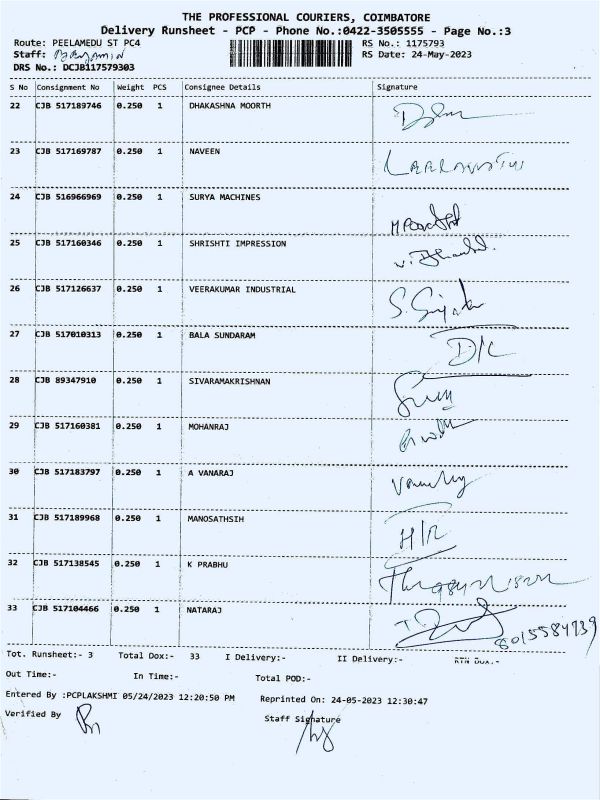 THE PROFESSIONAL COURIERS, COIMBATORE
Delivery Runsheet - PCP - Phone No.:0422-3505555 - Page No.:3
Route: PEELAMEDU ST PC4 RS No.: 1175793
Staff: RS Date: 24-May-2023
DRS No.: DCJB117579303
S No Consignment No Weight PCS Consignee Details Signature
22 CJB 517189746 0.250 1 DHAKASHNA MOORTH
23 CJB 517169787 0.250 1 NAVEEN
24 CJB 516966969 0.250 1 SURYA MACHINES
25 CJB 517160346 0.250 1 SHRISHTI IMPRESSION
26 CJB 517126637 0.250 1 VEERAKUMAR INDUSTRIAL
27 CJB 517010313 0.250 1 BALA SUNDARAM D/C
28 CJB 89347910 0.250 1 SIVARAMAKRISHNAN
29 CJB 517160381 0.250 1 MOHANRAJ
30 CJB 517183797 0.250 1 A VANARAJ
31 CJB 517189968 0.250 1 MANOSATHSIH H/R
32 CJB 517138545 0.250 1 K PRABHU
33 CJB 517104466 0.250 1 NATARAJ
Tot. Runsheet:- 3 Total Dox:- 33 I Delivery:- II Delivery:-
Out Time:- In Time:- Total POD:-
Entered By :PCPLAKSHMI 05/24/2023 12:20:50 PM Reprinted On: 24-05-2023 12:30:47
Verified By Staff Signature